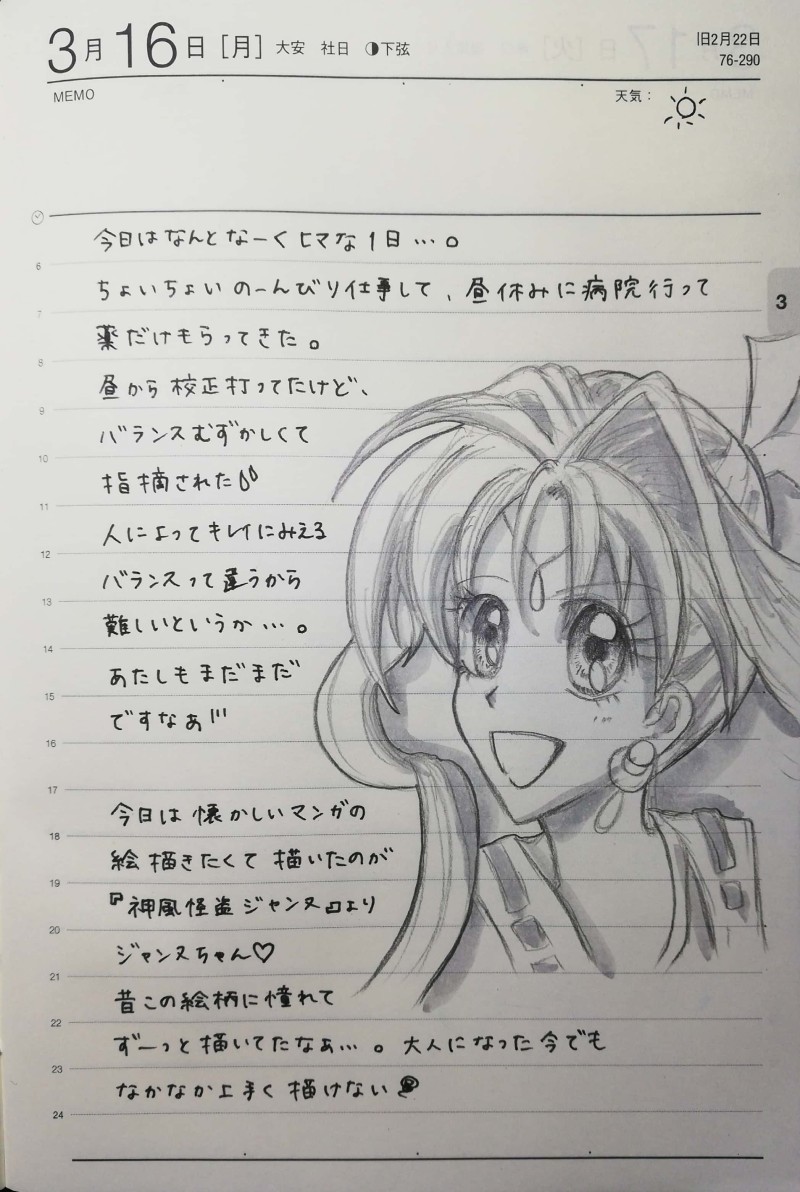 3月16日[月] 大安 社日 ◑下弦
旧2月22日
76-290
MEMO
天気：
今日はなんとなーくヒマな1日…。
6
ちょいちょいのーんびり仕事して、昼休みに病院行って
7
3
薬だけもらってきた。
8
昼から校正打ってたけど、
9
バランスむずかしくて
10
指摘された
11
人によってキレイにみえる
12
バランスって違うから
13
難しいというか…。
14
あたしもまだまだ
15
ですなぁ
16
17
今日は懐かしいマンガの
18
絵描きたくて描いたのが
19
『神風怪盗ジャンヌ』より
20
ジャンヌちゃん♡
21
昔この絵柄に憧れて
22
ずーっと描いてたなぁ…。大人になった今でも
23
なかなか上手く描けない
24